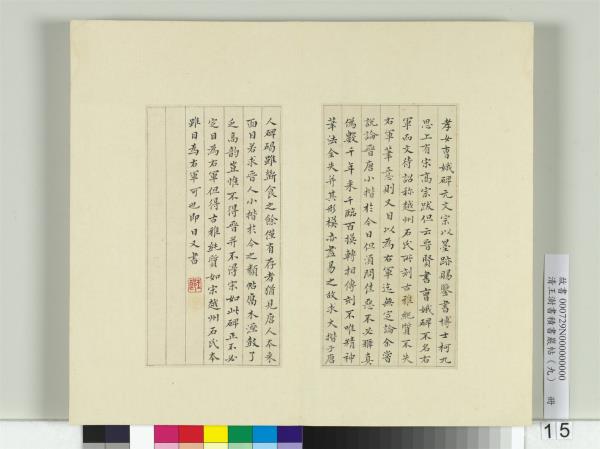 孝女曹娥碑元文宗以墨跡賜鑒書博士柯九
思上有宋高宗跋但云晉賢書曹娥碑不名右
軍而文待詔称越州石氏所刻古雅純質不失
右軍筆意則又目以為右軍迄無定論余嘗
說論晉唐小楷於今日但須問佳惡不必辨真
偽數千年来千臨百摸轉相傳刻不唯精神
筆法全失并其形模亦盡易之故求大楷于唐
人碑碣雖斷食之餘僅有存者猶見唐人本来
面目若求晉人小楷於今之類帖腐木溼鼓了
乏高韵豈惟不得晉并不得宋如此碑正不必
定目為右軍但得古雅純質如宋越州石氏本
雖目為右軍可也即日又書
故書 000729N000000000
清王澍書積書巖帖(九) 冊
15